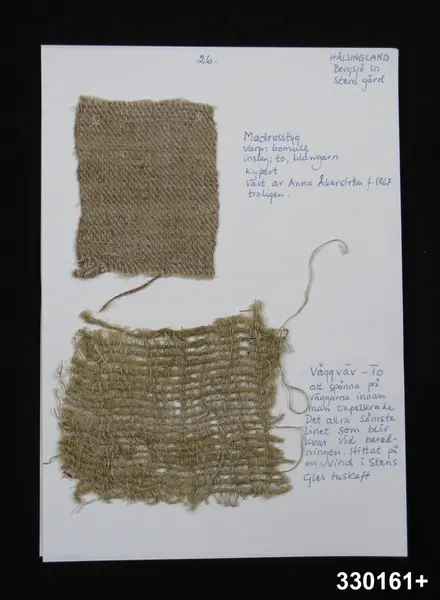 26.
HÄLSINGLAND
Bergsjö sn
Stens gård
Madrasstyg
varp: bomull
inslag: to, blångarn
kypert
Vävt av Anna Åkerström f. 1867
troligen.
Väggväv - To
att spänna på
väggarna innan
man tapetserade
Det allra sämsta
linet som blir
kvar vid bered-
ningen. Hittat på
en vind i Stens
Gles tuskaft
330161+